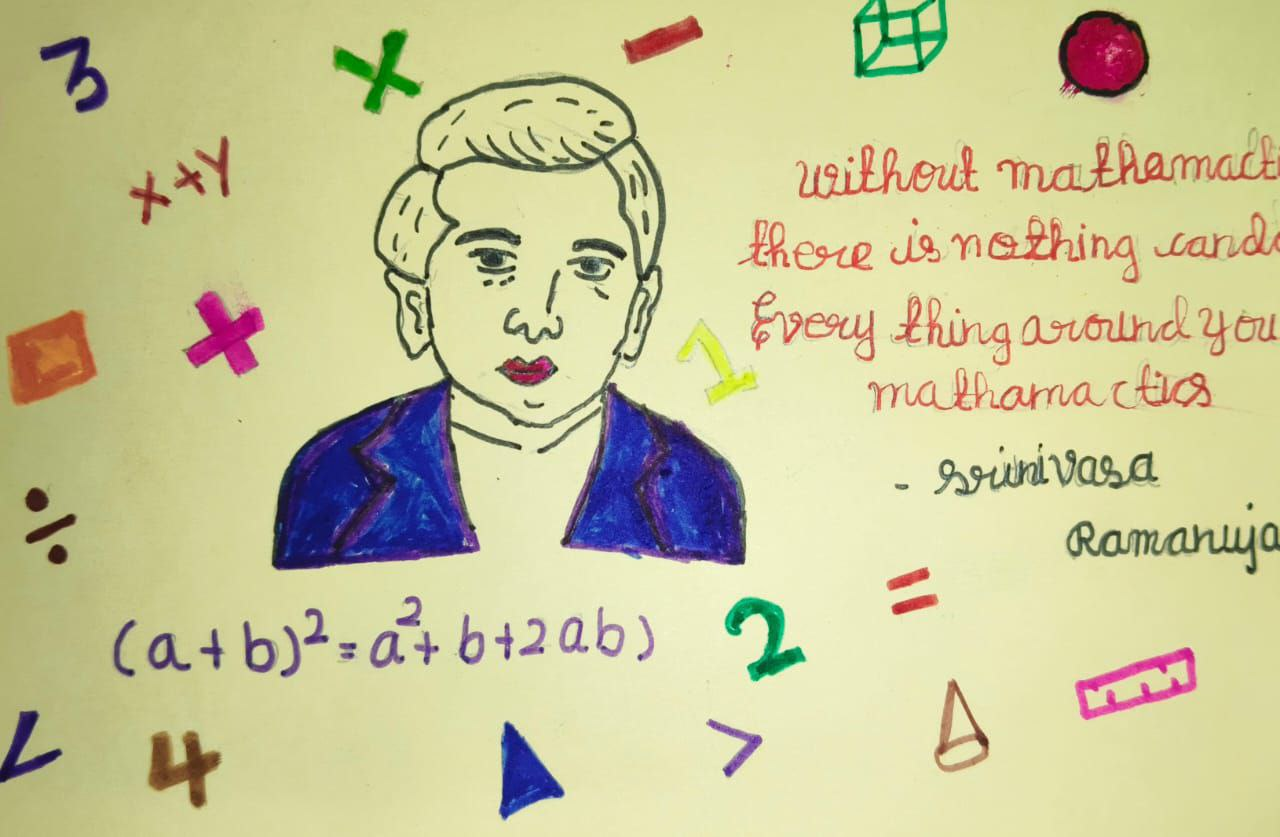 3
x
x+y
without mathamacti
there is nothing cando
Every thing around you
mathamactics
1
÷
- srinivasa
Ramanuja
=
(a+b)²=a²+b+2ab)
2
<
4
>